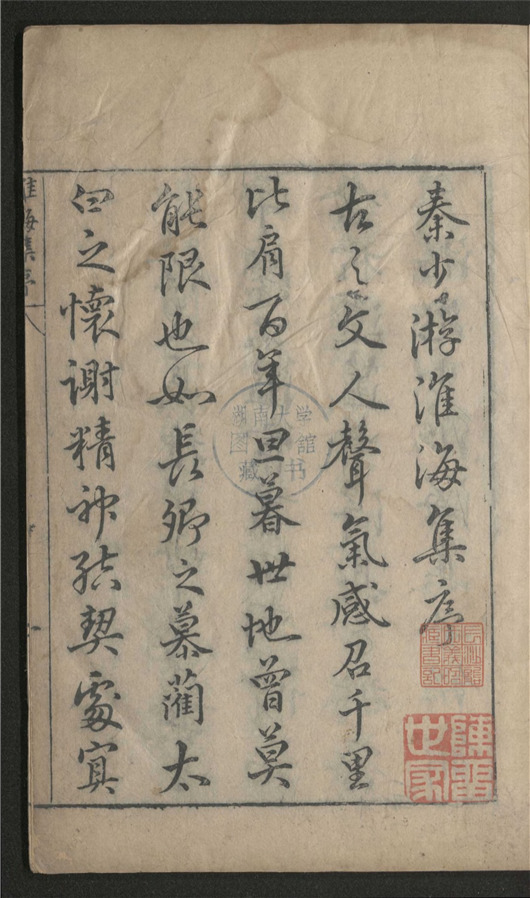 秦少游淮海集序
古之文人聲氣感召千里
比肩百年旦暮世地曾莫
能限也如長卿之慕藺太
白之懷謝精神結契處寔
淮海集序
湖南大学
图書館
藏书